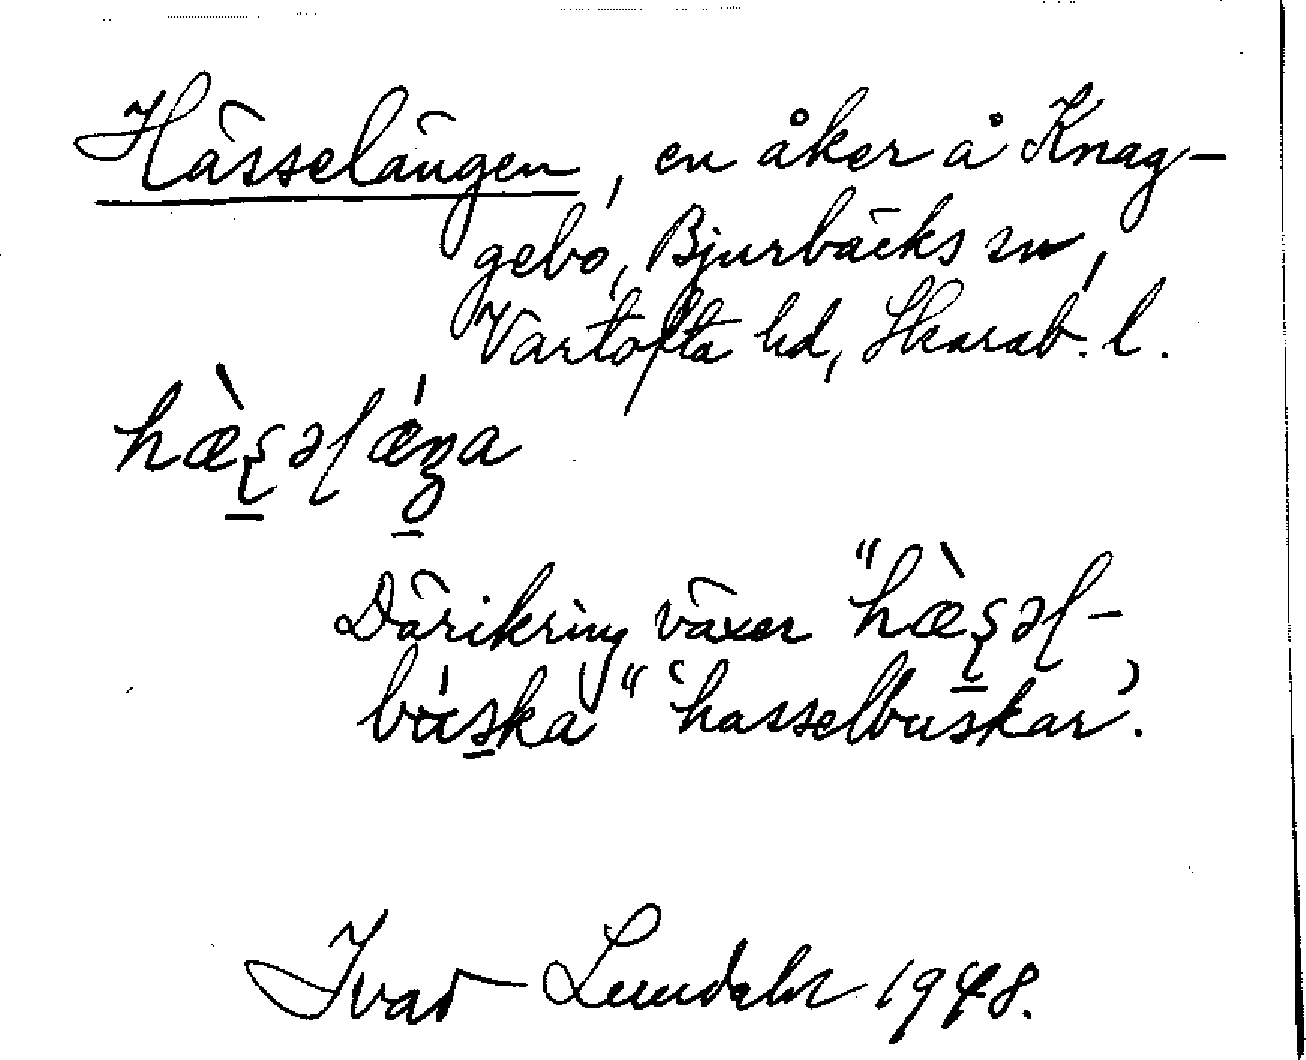 Hässelängen, en åker å Knag-
gebo, Bjurbäcks sn,
Vartofta hd, Skarab. l.
hæ̀s̠əlǽŋ̠a
Därikring växer "hæ̀s̠əl-
bús̠ka" 'hasselbuskar'.
Ivar Lundahl 1948.